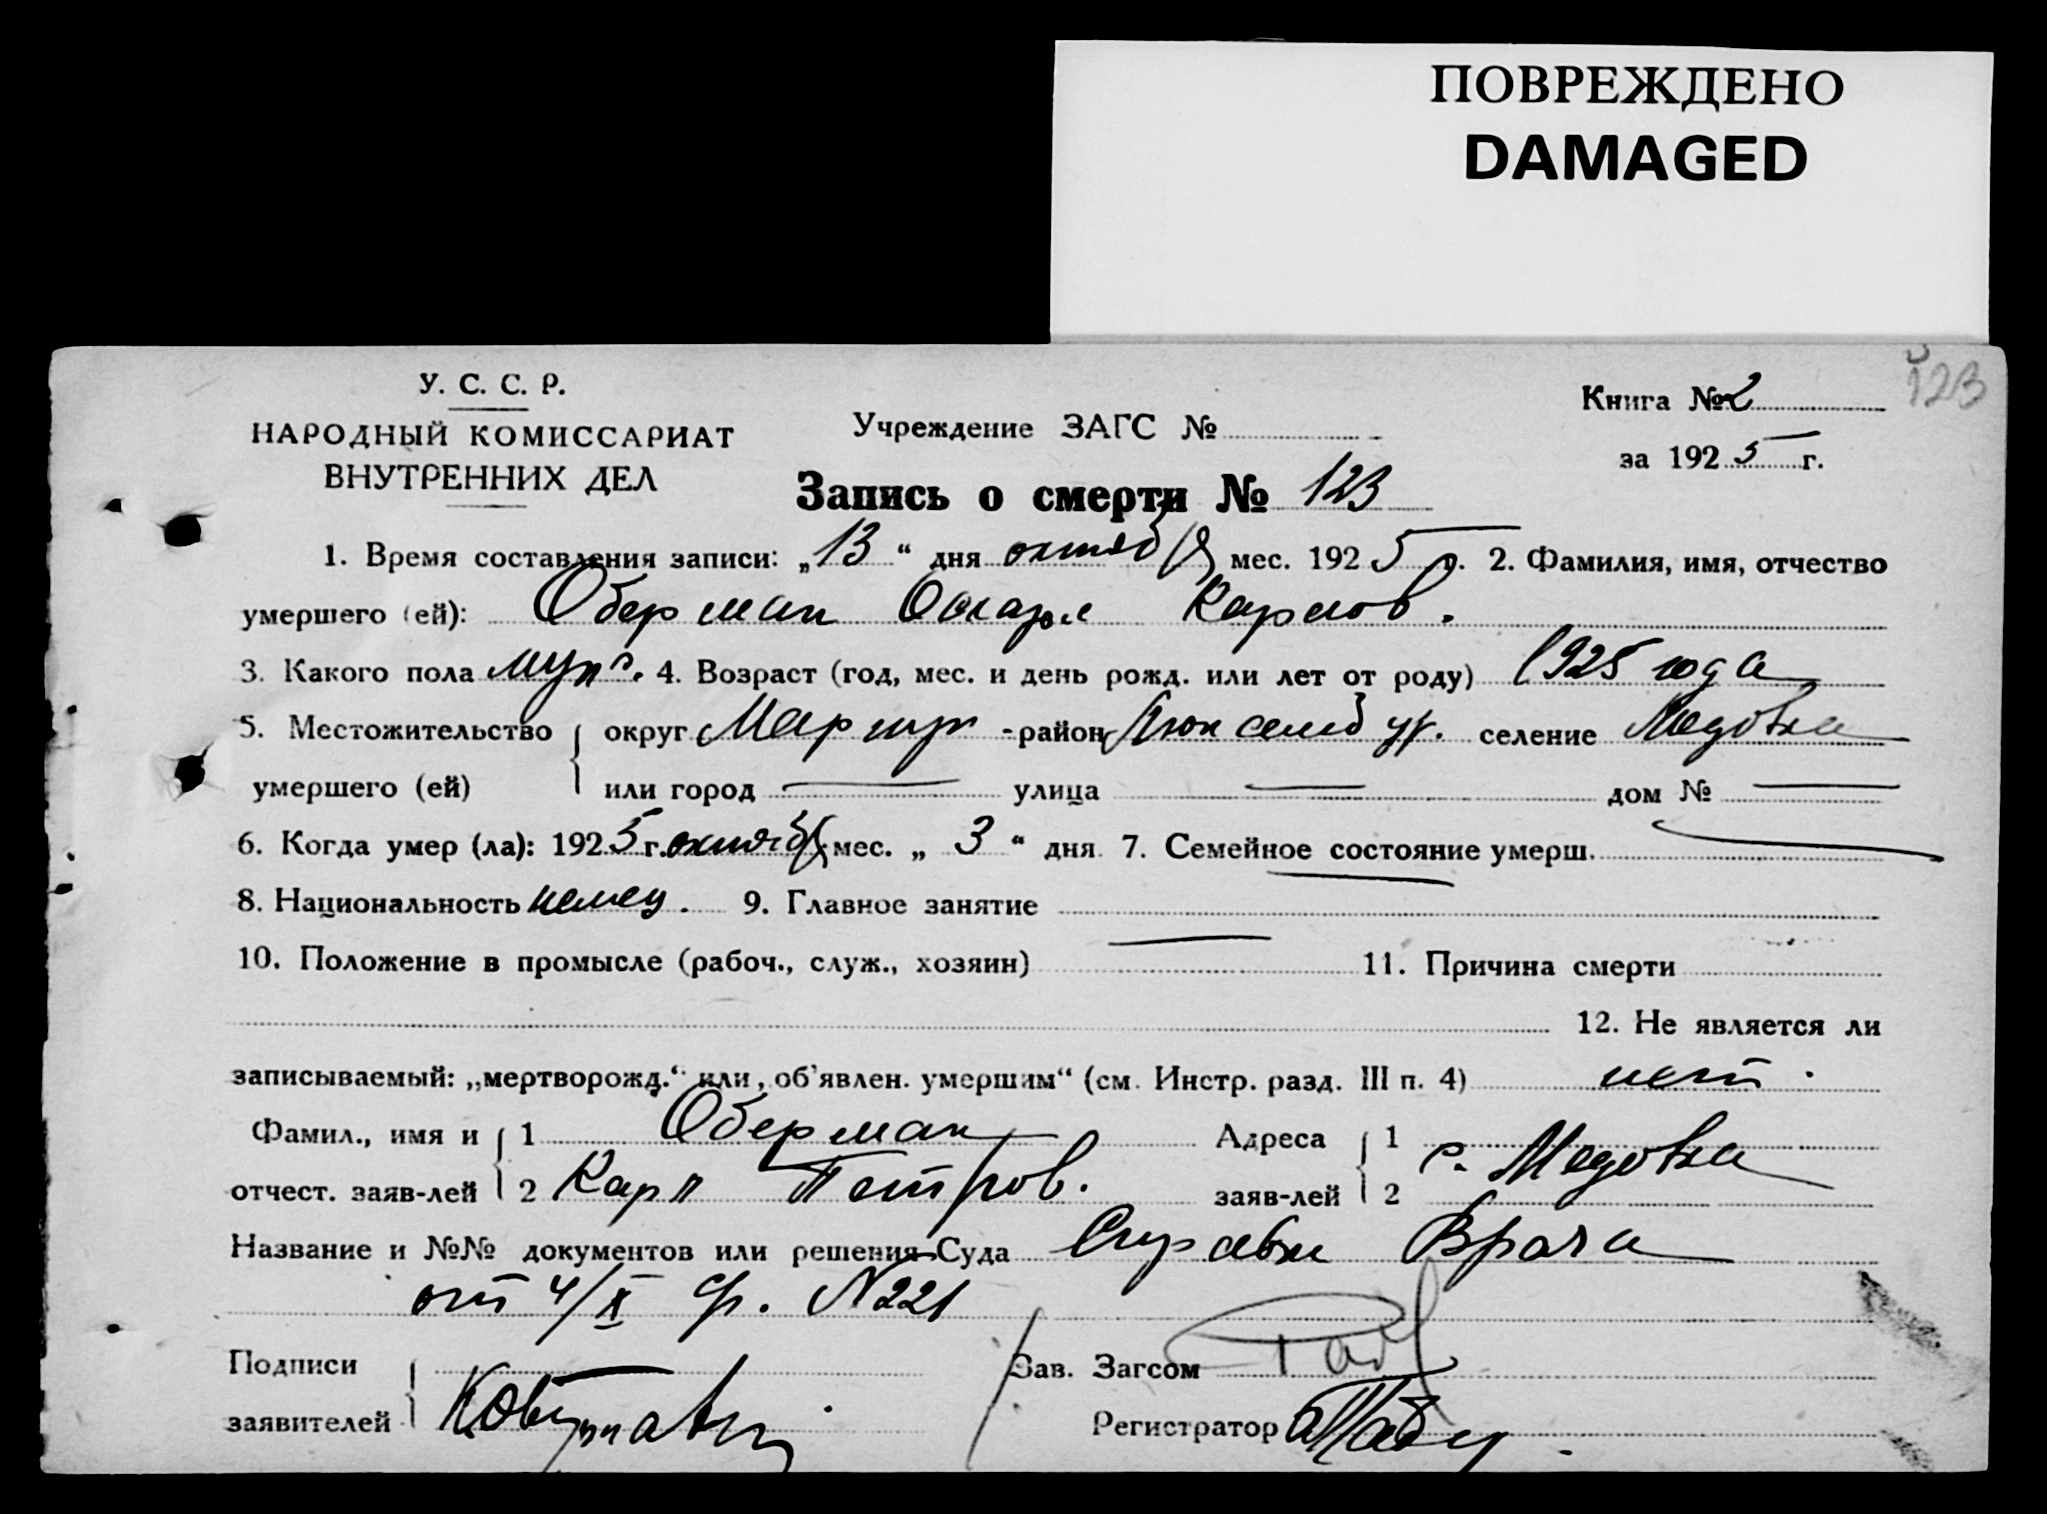 ПОВРЕЖДЕНО
DAMAGED
123
У. С. С. Р.
НАРОДНЫЙ КОМИССАРИАТ
ВНУТРЕННИХ ДЕЛ
Учреждение ЗАГС №
Книга № 2
за 1925 г.
Запись о смерти № 123
1. Время составления записи: „13“ дня октяб мес. 1925 г. 2. Фамилия, имя, отчество
умершего (ей): Оберман Оскар Карлов.
3. Какого пола муж. 4. Возраст (год, мес. и день рожд. или лет от роду) 1925 года
5. Местожительство округ Мариуп - район селение Медовка
умершего (ей) или город — улица — дом № —
6. Когда умер (ла): 1925 г. октяб мес. „ 3 “ дня. 7. Семейное состояние умерш. —
8. Национальность немец. 9. Главное занятие —
10. Положение в промысле (рабоч., служ., хозяин) — 11. Причина смерти
12. Не является ли
записываемый: „мертворожд.“ или „об'явлен. умершим“ (см. Инстр. разд. III п. 4) нет.
Фамил., имя и 1 Оберман Адреса 1 с. Медовка
отчест. заяв-лей 2 Карл Петров. заяв-лей 2
Название и №№ документов или решения Суда Справки Врача
от 4/X ср. N221
Подписи Зав. Загсом
заявителей Регистратор